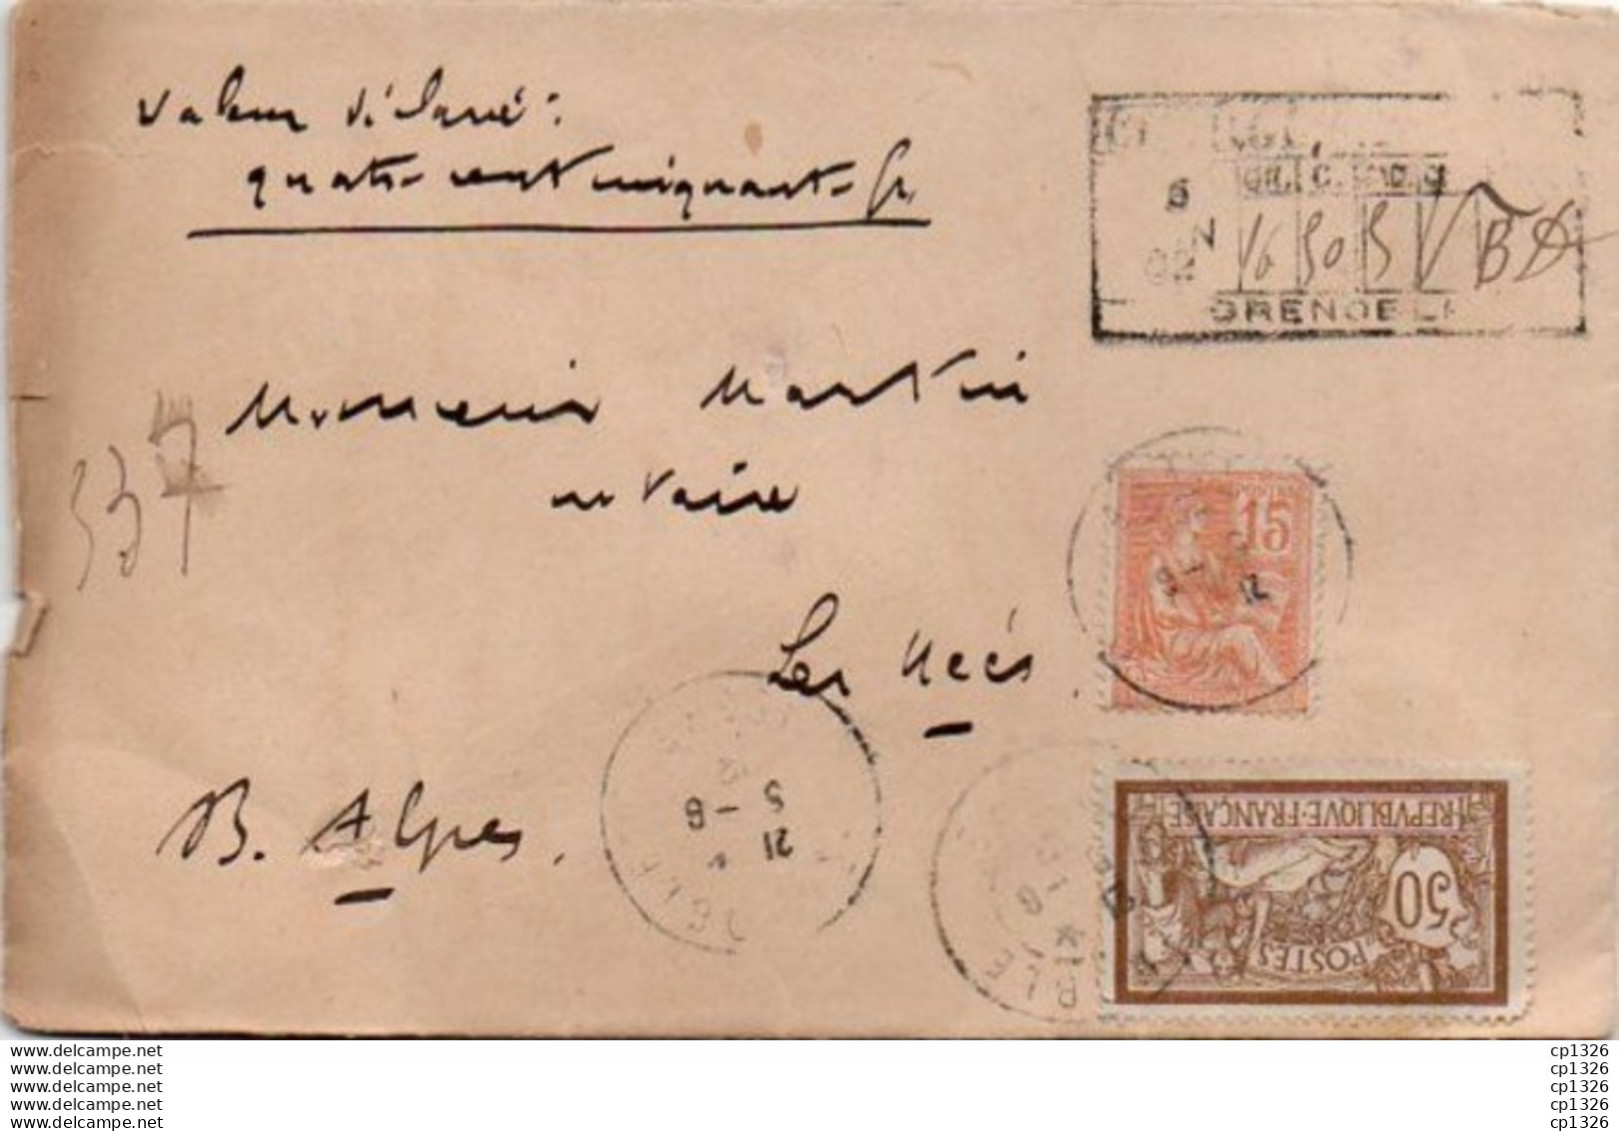 Valeur déclaré:
quatre cent cinquante fr.
5
02
GR. C.
16 50 5 V BD
GRENOBLE
Monsieur Martin
notaire
337
Les Mées.
B. Alpes.
15
21
5
12
RÉPUBLIQUE·FRANÇAISE
50
POSTES
www.delcampe.net
www.delcampe.net
www.delcampe.net
www.delcampe.net
www.delcampe.net
cp1326
cp1326
cp1326
cp1326
cp1326